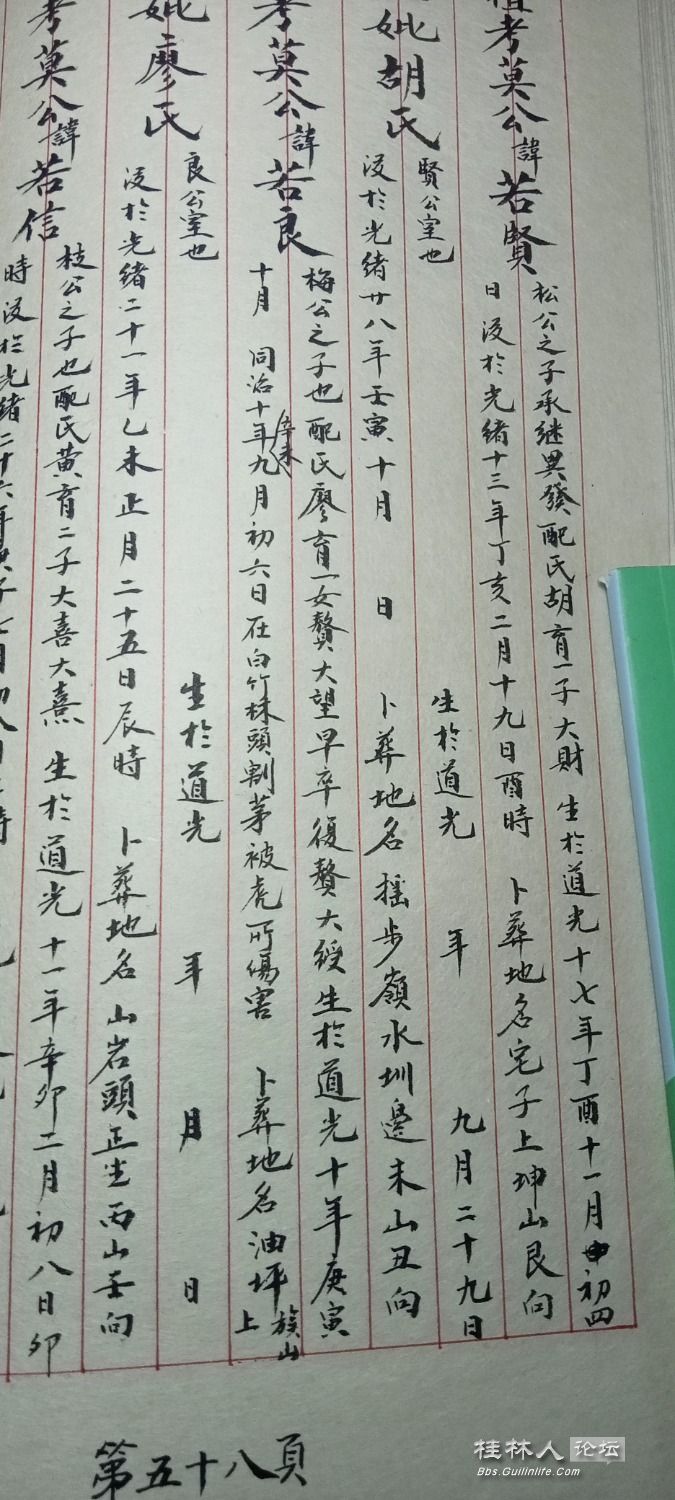 祖考莫公諱若賢
松公之子承継異發配氏胡育一子大財 生於道光十七年丁酉十一月初四
日 没於光緒十三年丁亥二月十九日酉時 卜葬地名宅子上坤山艮向
妣胡氏
賢公室也 生於道光 年 九月二十九日
没於光緒廿八年壬寅十月 日 卜葬地名摇步嶺水圳邊未山丑向
考莫公諱若良
梅公之子也配氏廖育一女贅大望早卒復贅大綬生於道光十年庚寅
十月 同治十年辛未九月初六日在白竹林頭割茅被虎所傷害 卜葬地名油坪族山上
妣廖氏
良公室也 生於道光 年 月 日
没於光緒二十一年乙未正月二十五日辰時 卜葬地名山岩頭正坐丙山壬向
考莫公諱若信
枝公之子也配氏黄育二子大喜大熹 生於道光十一年辛卯二月初八日卯
時没於光緒二十六年庚子七月初八日
第五十八頁
桂林人论坛
Bbs.Guilinlife.Com